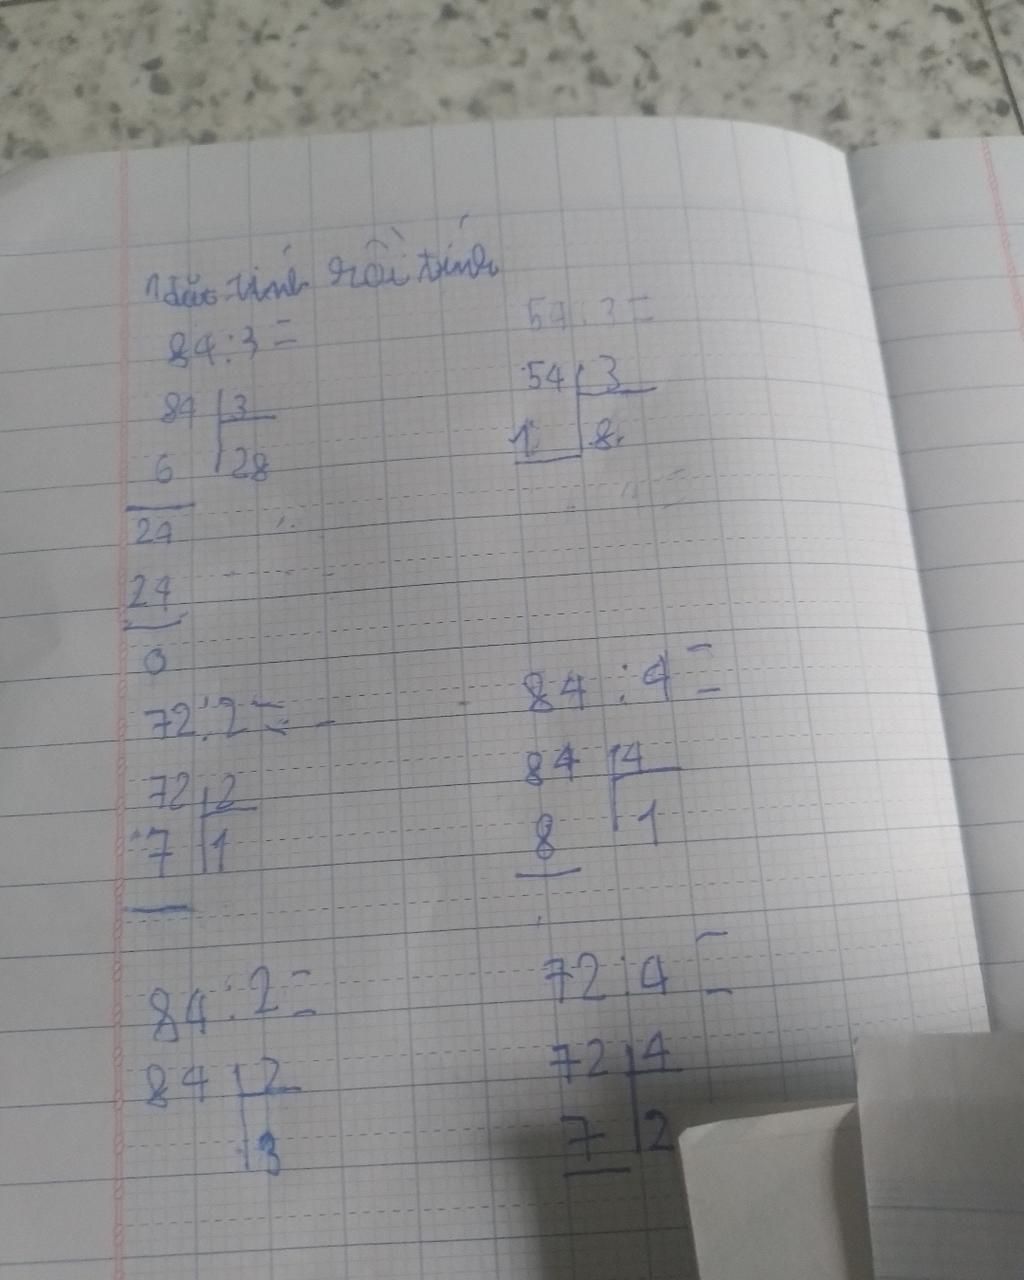 1 đặt tính rồi tính
84 : 3 =
54 : 3 =
84 3
6 28
24
24
0
54 3
1 8
72 : 2 =
84 : 4 =
72 2
7 1
84 4
8 1
84 : 2 =
72 : 4 =
84 2
3
72 4
7 2